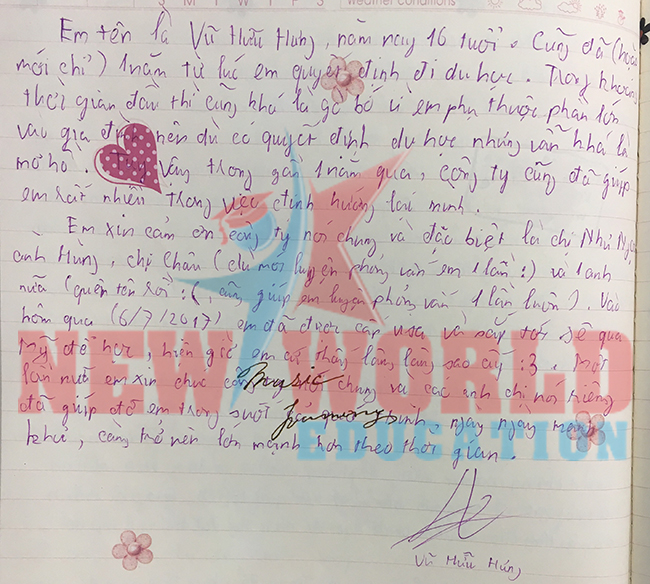 S M T W T F S weather conditions
Em tên là Vũ Hữu Hưng, năm nay 16 tuổi. Cũng đã (hoặc
mới chỉ) 1 năm từ lúc em quyết định đi du học. Trong khoảng
thời gian đầu thì cũng khá là gò bó vì em phụ thuộc phần lớn
vào gia đình nên dù có quyết định du học nhưng vẫn khá là
mơ hồ. Tuy vậy trong gần 1 năm qua, công ty cũng đã giúp
em rất nhiều trong việc định hướng lại mình.
Em xin cảm ơn công ty nói chung và đặc biệt là chị Như Ngọc
anh Hùng, chị Châu (dù mới luyện phỏng vấn em 1 lần :) và 1 anh
nữa (quên tên rồi :(, cũng giúp em luyện phỏng vấn 1 lần luôn). Vào
hôm qua (6/7/2017) em đã được cấp visa và sắp tới sẽ qua
Mỹ để học, hiện giờ em cứ thấy lâng lâng sao ấy :3. Một
lần nữa em xin chúc music chung và các anh chị nói riêng
đã giúp đỡ em trong suốt ngày ngày
khứ, càng trở nên lớn mạnh hơn theo thời gian.
Vũ Hữu Hưng
NEW WORLD
EDUCATION